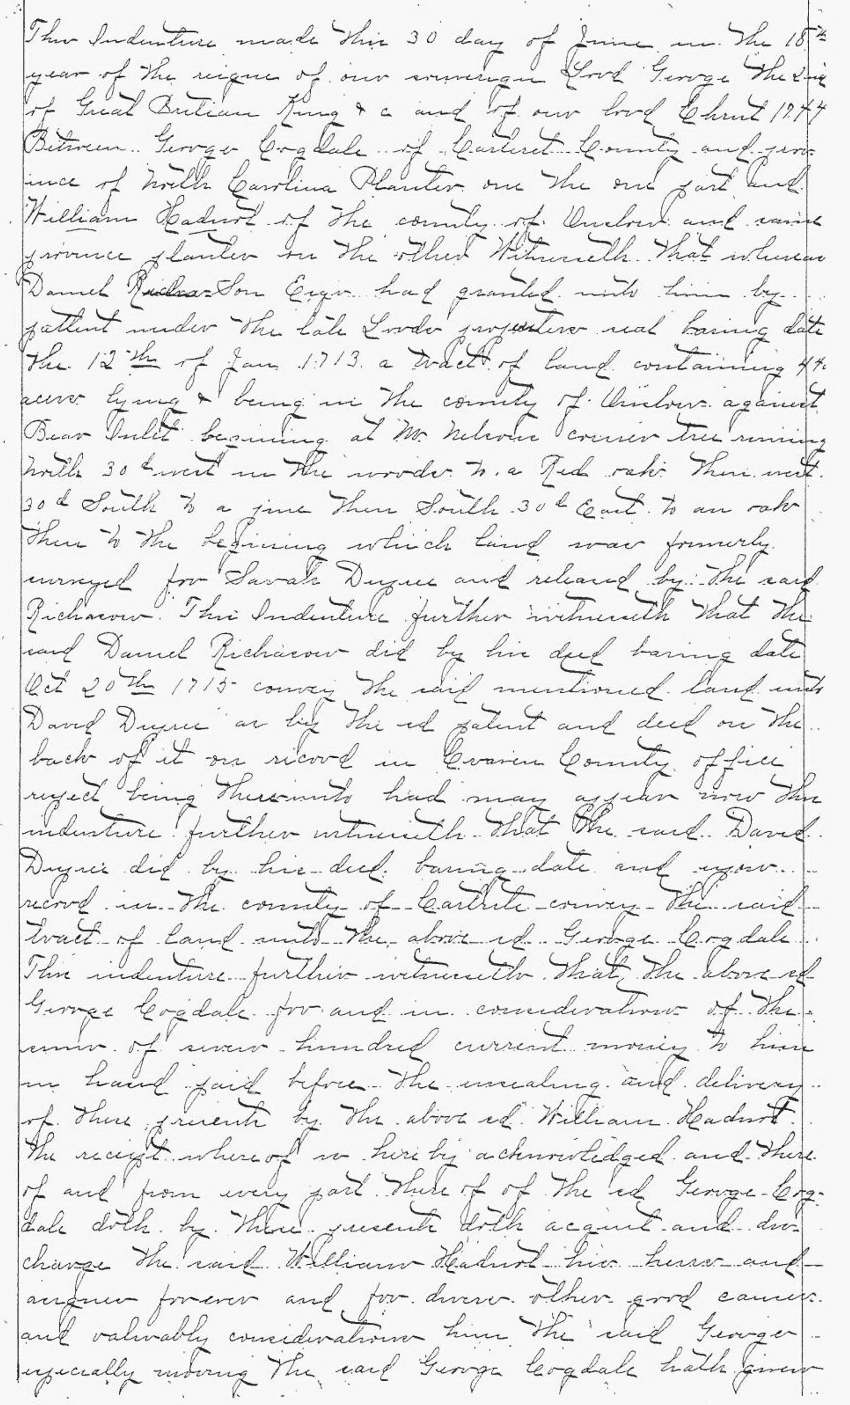 This Indenture made this 30 day of June in the 18th
year of the reigne of our sovereign Lord George the 2nd
of Great Britian King & c and of our lord Christ 1744
Between George Cogdale of Carteret County and prov-
ince of North Carolina Planter one the one part and
William Hadnot of the county of Onslow and same
province planter on the other Witnesseth that whereas
Daniel Richa-Son Esqr had granted unto him by
pattent under the late Lords seal baring date
the 12th of Jan 1713 a tract of land containing 440
acers lying & being in the county of Onslow against
Bear Inlet begining at Mr Nelsons corner tree running
North 30 d west in the woods to a Red oak then west
30 d South to a pine then South 30 d East to an oak
then to the begining which land was formerly
surveyed for Sarah Dupree and released by the said
Richason This Indenture further witnesseth that the
said Daniel Richason did by his deed baring date
Oct 20th 1715 convey the said mentioned land unto
David Dupree as by the sd patent and deed on the
back of it on record in Craven County office
respect being thereunto had may appear now this
indenture further witnesseth that the said David
Dupree did by his deed baring date and upon
record in the county of Cartrite convey the said
tract of land unto the above sd George Cogdale
This indenture further witnesseth that the above sd
George Cogdale for and in consideration of the
summ of seven hundred current money to him
in hand paid before the ensealing and delivery
of these presents by the above sd William Hadnot
the receipt whereof is hereby acknowledged and there
of and from every part there of of the sd George Cog-
dale doth by these presents doth acquit and dis-
charge the said William Hadnot his heirs and
assignes forever and for divers other good causes
and valuably considerations him the said George
especially moving the said George Cogdale hath given